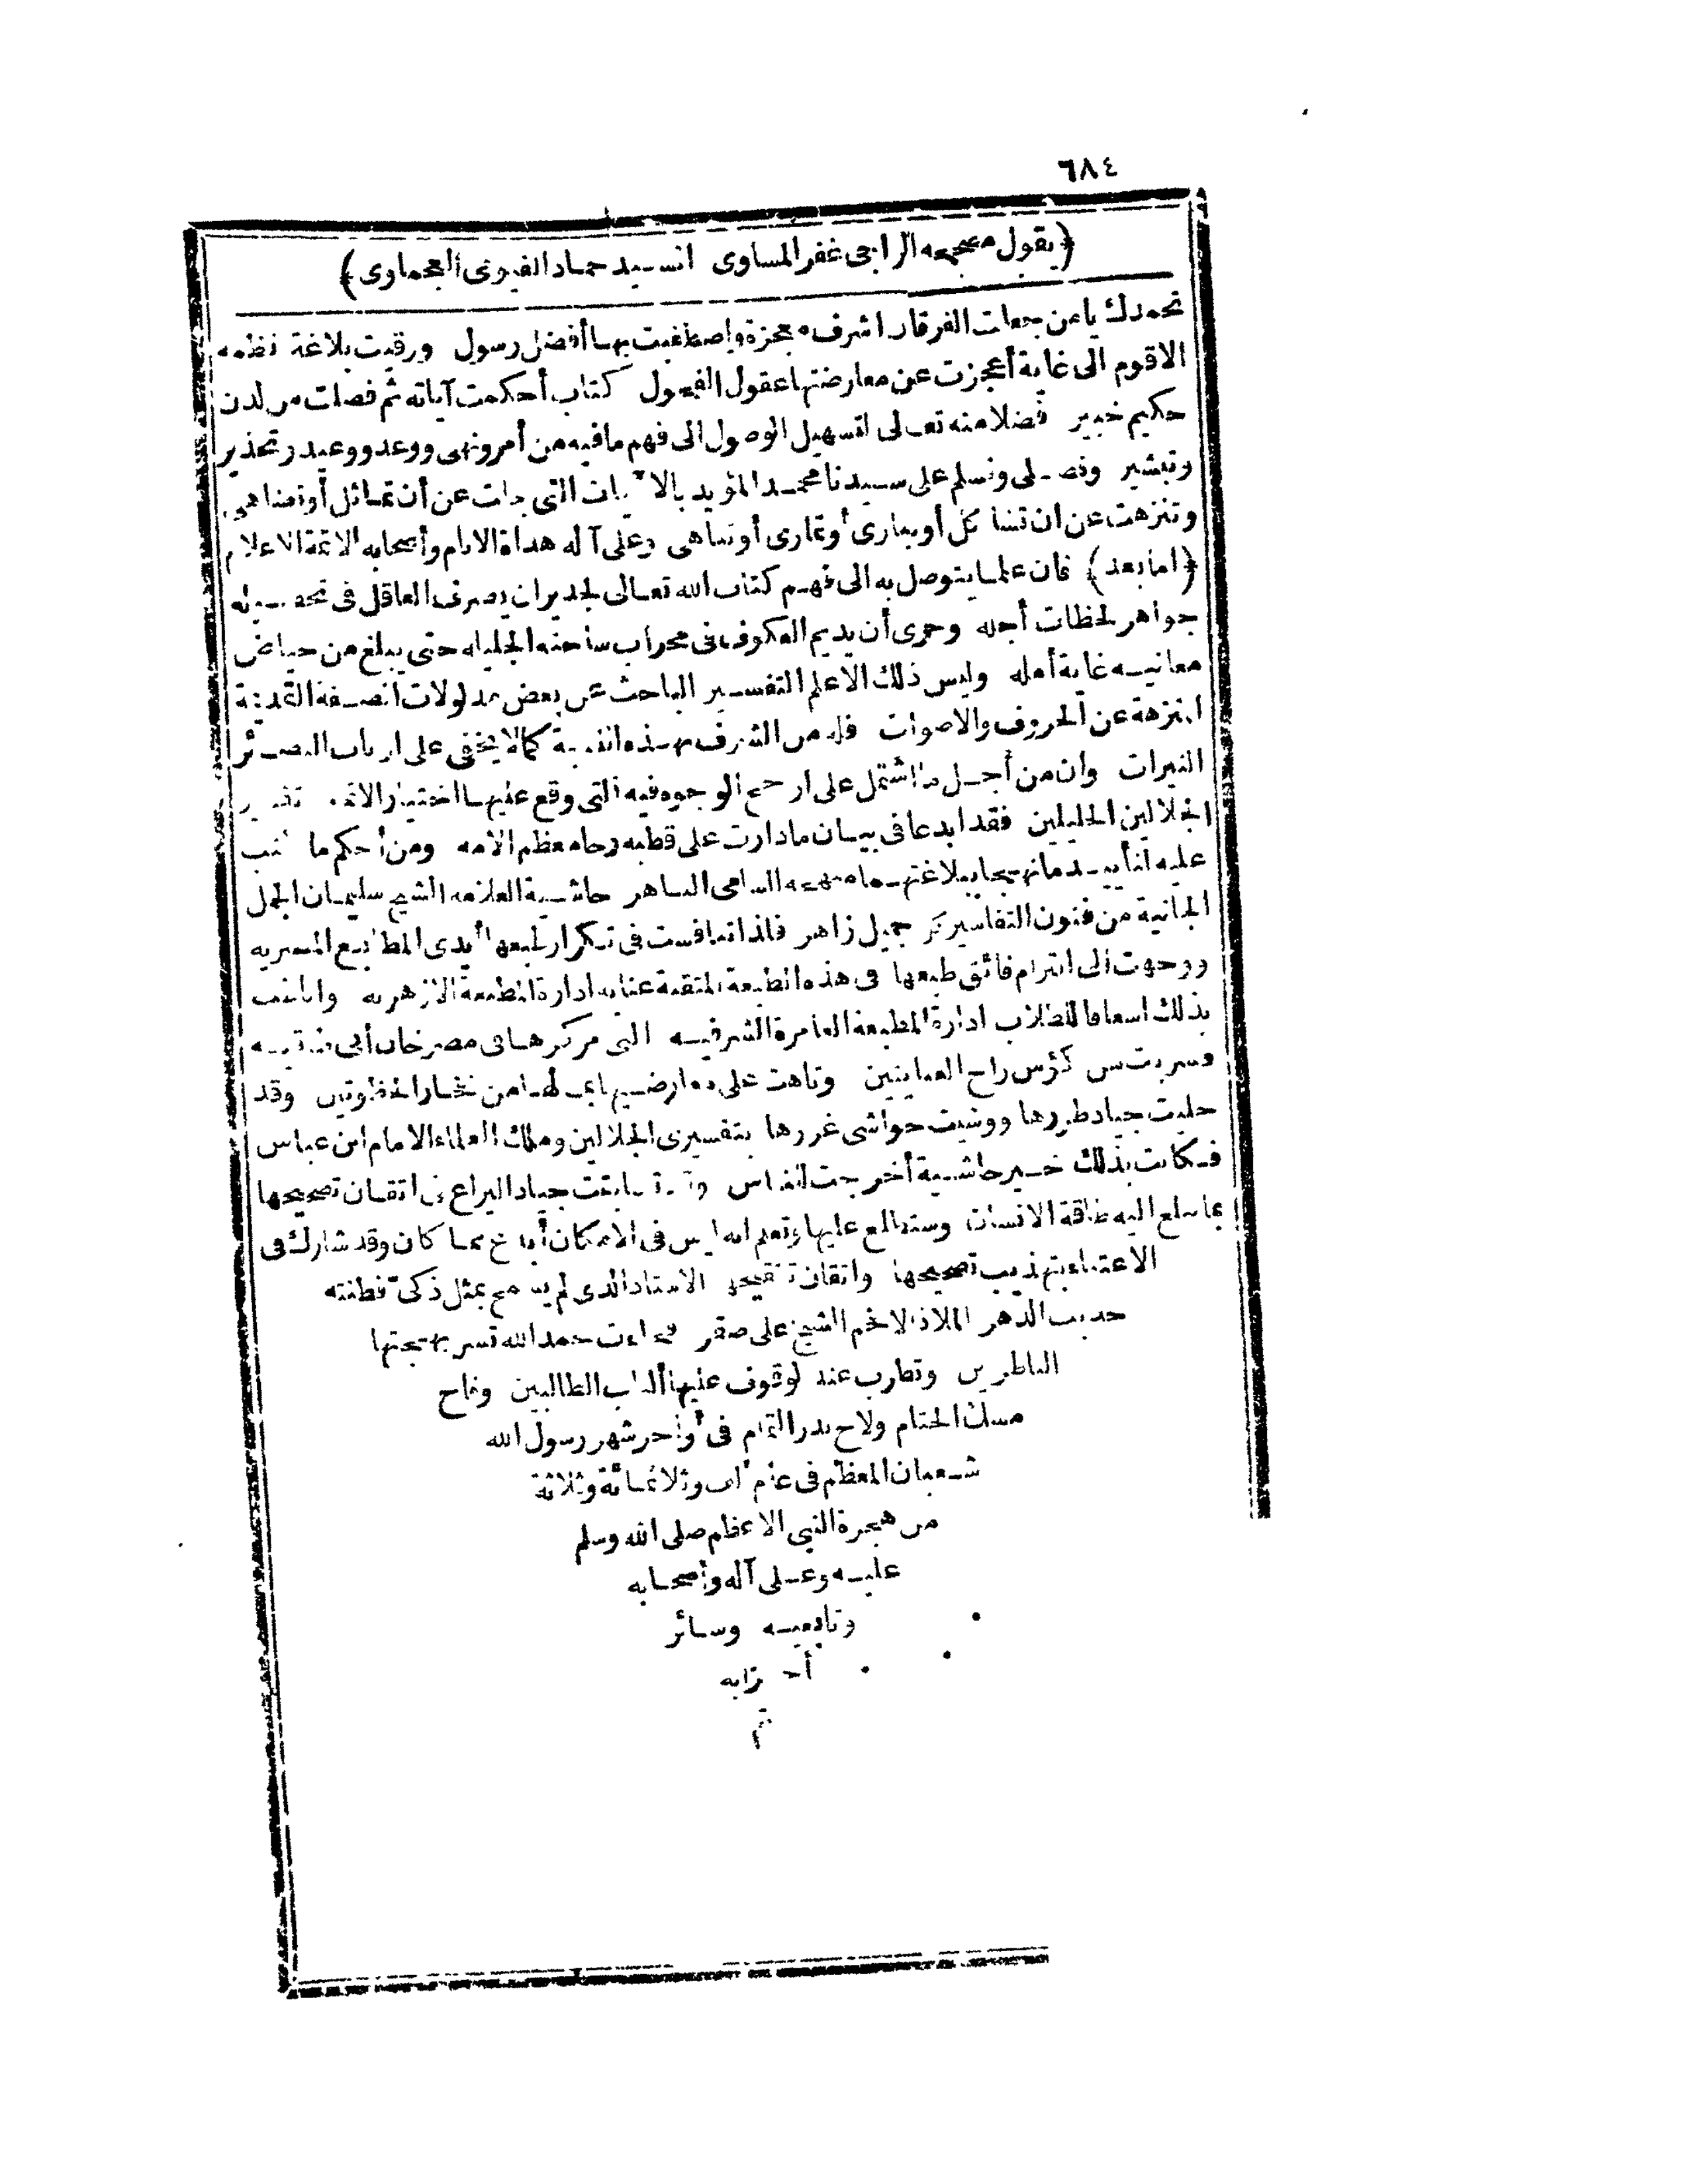 ٦٨٤
﴿يقول مصححه الراجى غفر المساوى السيد حماد الفيومى العجماوى﴾
نحمدك يا من جعلت الفرقان اشرف معجزة واصطفيت بها أفضل رسول ورقيت بلاغة نظمه
الاقوم الى غاية أعجزت عن معارضتها عقول الفحول كتاب أحكمت آياته ثم فصلت من لدن
حكيم خبير فضلا منه تعالى لتسهيل الوصول الى فهم ما فيه من أمر ونهى ووعد ووعيد وتحذير
وتبشير ونصلى ونسلم على سيدنا محمد المؤيد بالآيات التى جلت عن أن تماثل أو تضاهى
وتنزهت عن أن تشاكل أو يمارى أو تمارى أو تباهى وعلى آله هداة الانام وأصحابه الائمة الاعلام
﴿أما بعد﴾ فان علما يتوصل به الى فهم كتاب الله تعالى لجدير ان يصرف العاقل فى تحصيله
جواهر لحظات أجله وحرى أن يديم العكوف فى محراب ساحته الجليله حتى يبلغ من حياض
معانيه غاية أمله وليس ذلك الا علم التفسير الباحث عن بعض مدلولات الصفة القديمة
المنزهة عن الحروف والاصوات فله من الشرف بهذه النسبة كما لا يخفى على ارباب البصائر
النيرات وان من أجل ما اشتمل على ارجح الوجوه فيه التى وقع عليها اختيار الائمة تفسير
الجلالين الجليلين فقد ابدعا فى بيان ما دارت على قطبه رحا معظم الامه ومن أحكم ما كتب
عليه حاشية العلامة الشيخ سليمان الجمل
الجانية من فنون التفاسير كل جميل زاهر فلذا تنافست فى تكرار طبعها أيدى المطابع المصريه
ووجهت الى التزام فائق طبعها فى هذه الطبعة المتقنة عنايه ادارة المطبعة الازهريه
بذلك اسعافا للطلاب ادارة المطبعة العامرة الشرفيه التى مركزها فى مصر خان أبى طاقيه
كؤس راح العنايتين وتاهت على معارضيها بما لها من نخار الحظوتين وقد
حليت جياد طررها ووشيت حواشى غررها بتفسيرى الجلالين وملك العلماء الامام ابن عباس
فكانت بذلك خير حاشية أخرجت للناس جياد اليراع فى اتقان تصحيحها
بما تبلغ اليه طاقة الانسان وستطلع عليها وتعلم انه ليس فى الامكان أبدع مما كان وقد شارك فى
الاعتناء بتهذيب تصحيحها واتقان تنقيحها الاستاذ الذى لم يسمح بمثل ذكىّ فطنته
الدهر الملاذ الافخم الشيخ على صقر فجاءت بحمد الله تسر بهجتها
الناظرين وتطرب عند الوقوف عليها ألباب الطالبين وفاح
مسك الختام ولاح بدر التمام فى أواخر شهر رسول الله
شعبان المعظم فى عام ألف وثلاثمائة وثلاثة
من هجرة النبى الاعظم صلى الله وسلم
عليه وعلى آله وأصحابه
وتابعيه وسائر
أحزابه
تم